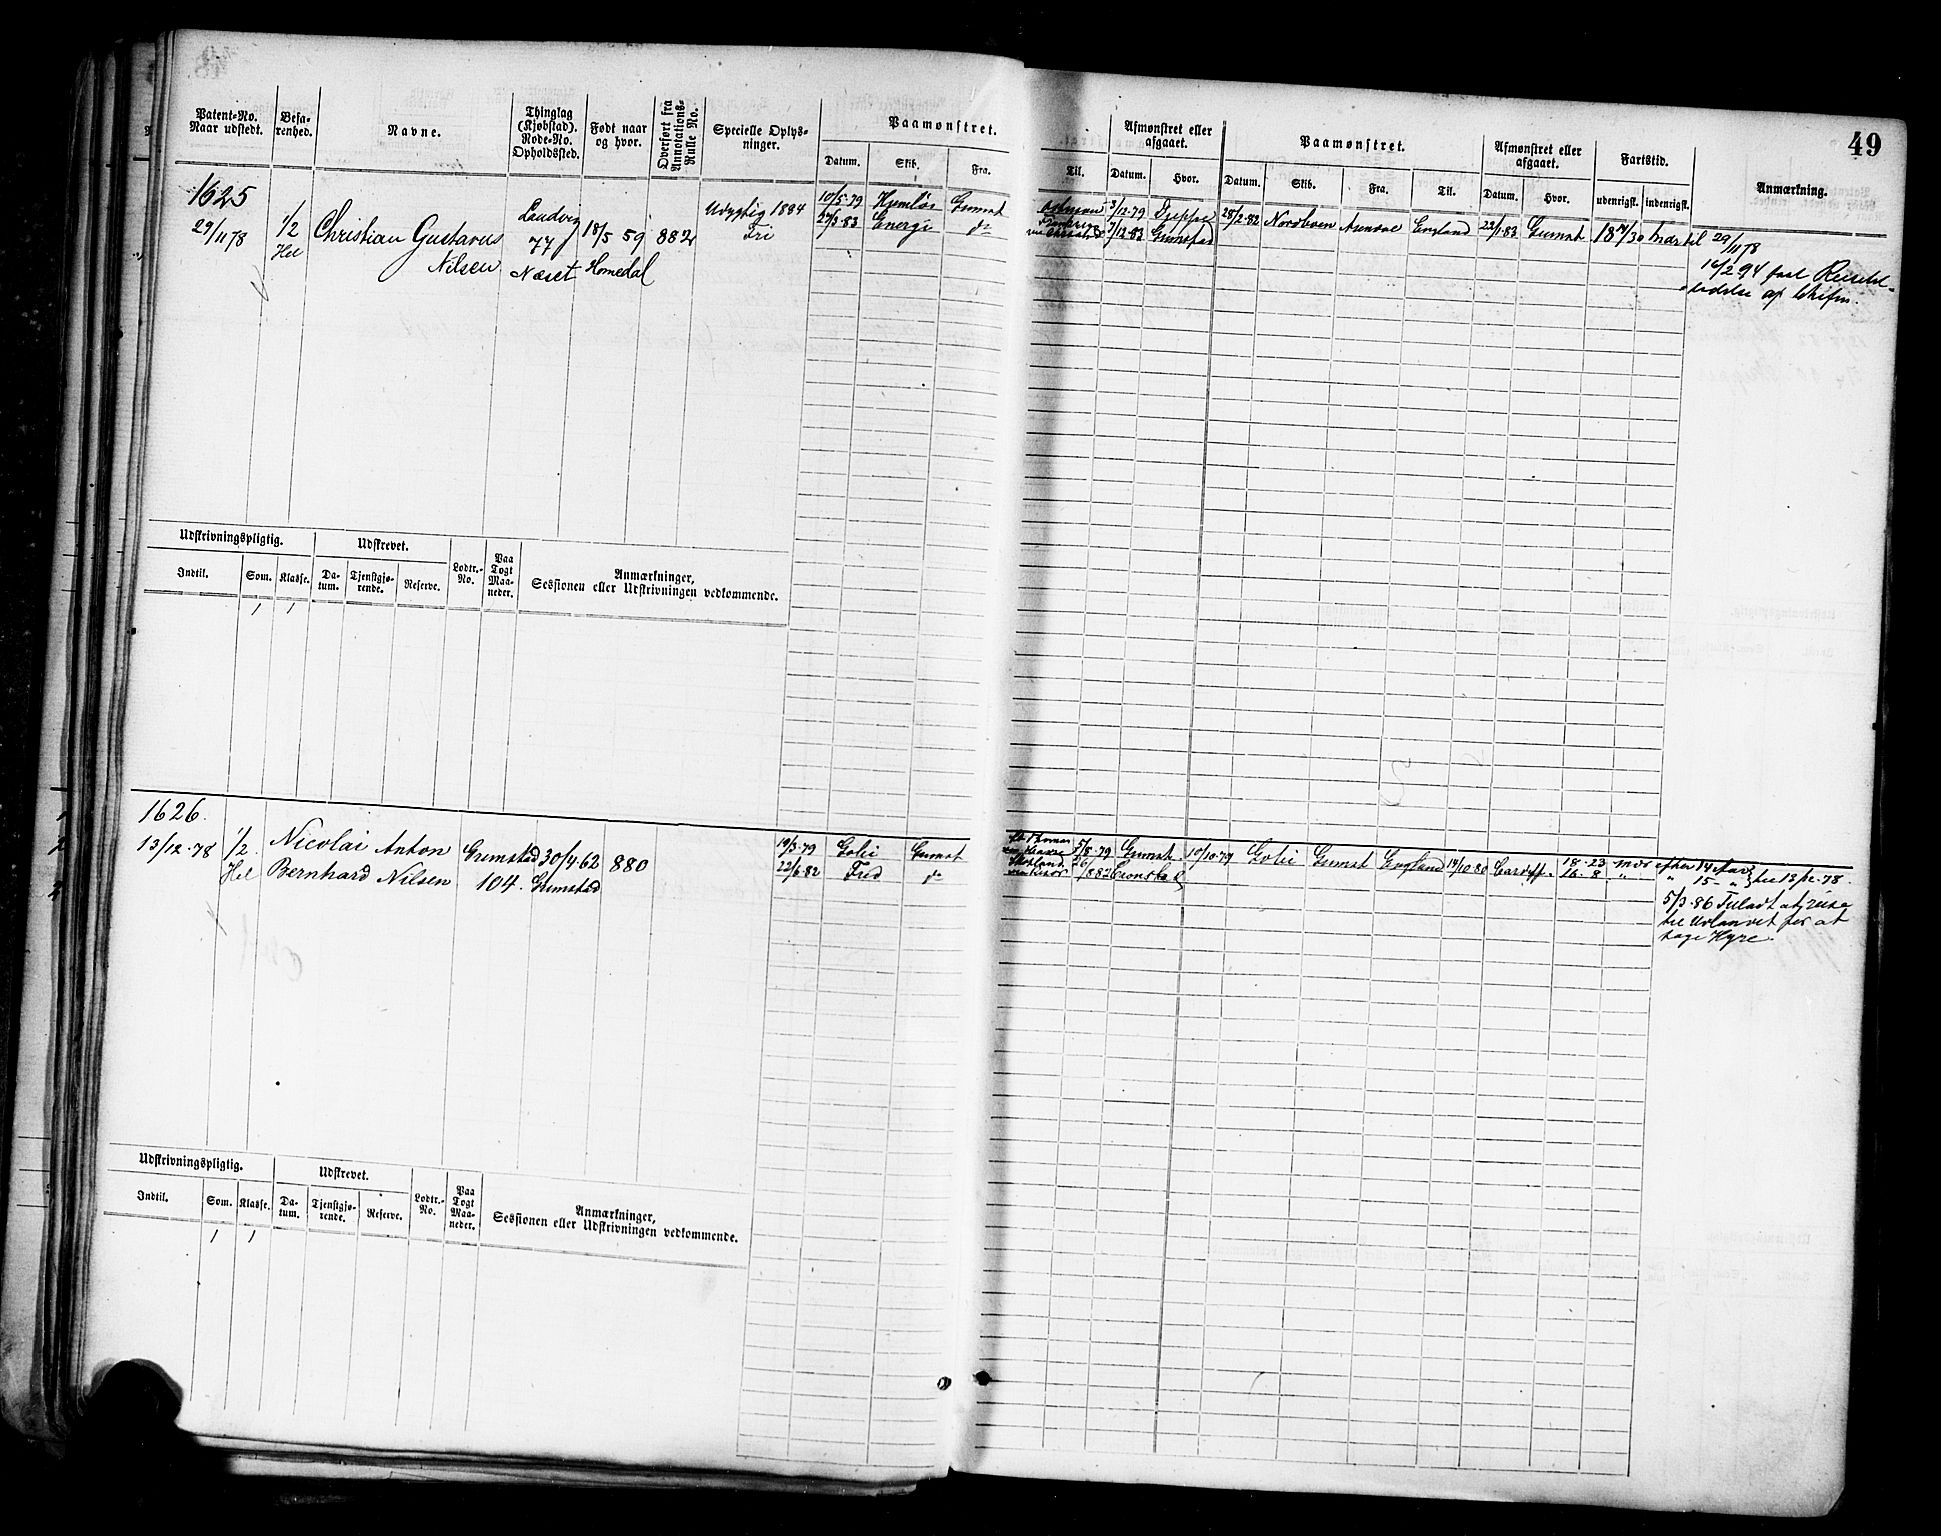 49
Patent-No. Naar udstedt. Befarenhed. Navne. Thinglag (Kjøbstad). Rode-No. Opholdssted. Født naar og hvor. Overført fra Annotations-Rulle No. Specielle Oplysninger. Paamønstret. Afmønstret eller afgaaet. Paamønstret. Afmønstret eller afgaaet. Fartstid. Anmærkning.
Datum. Skib. Fra. Til. Datum. Hvor. Datum. Skib. Fra. Til. Datum. Hvor. udenrigst. indenrigst.
1625
29/11 78 1/2 Hel Christian Gustavus Nilsen 77 Næset 18/5 59 Homedal 882 Udygtig 1884 Fri
10/5-79 Grimst 3/12-79 Dieppe 28/2-82 England 22/1-83 Grimst 18 Mdr til 29/11 78
83 Energi do 7/12-83 Grimstad
16/2 94
Udskrivningspligtig. Udskrevet. Lodtr.-No. Paa Togt Maaneder. Anmærkninger, Sessionen eller Udskrivningen vedkommende.
Indtil. Som. Klasse. Datum. Tjenstgjørende. Reserve.
1 1
1626.
13/12-78 1/2 Hel Nicolai Anton Bernhard Nilsen Grimstad 104. 30/4-62 Grimstad 880
19/3-79 Grimst 5/8-79 Grimst 10/10-79 Grimst England 19/10-80 Cardiff 18-23 mdr efter 14 Aar
22/6-82 Fred do 26/8 82 Cronstad 16-8 " " 15- " til 13/12-78.
5/3-86 Tilladt at reise
til Udlandet for at
tage Hyre.
Udskrivningspligtig. Udskrevet. Lodtr.-No. Paa Togt Maaneder. Anmærkninger, Sessionen eller Udskrivningen vedkommende.
Indtil. Som. Klasse. Datum. Tjenstgjørende. Reserve.
1 1